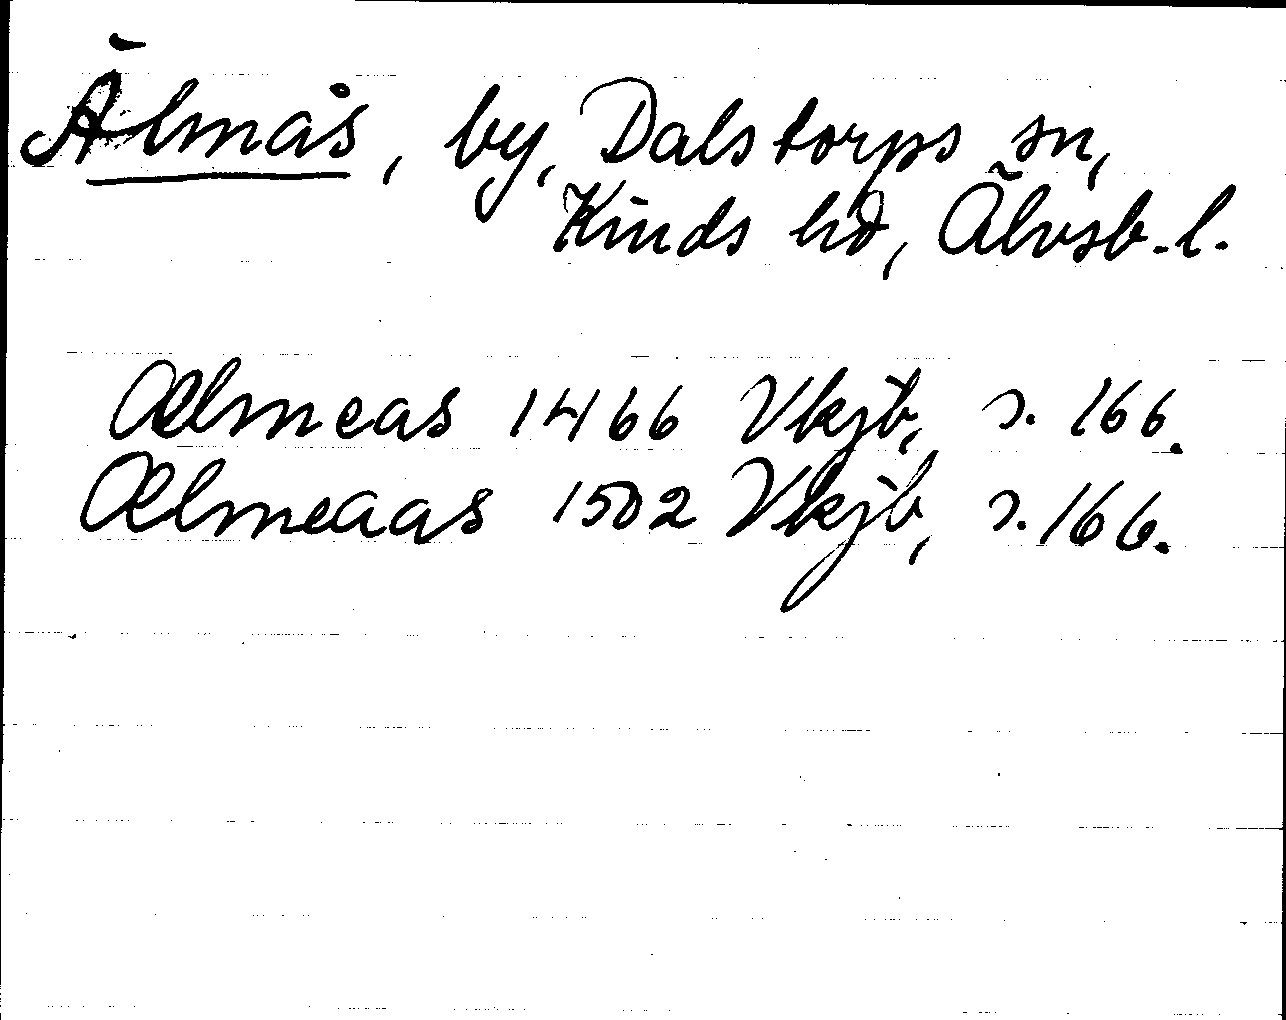 Älmås, by, Dalstorps sn,
Kinds hd, Älvsb. l.
Ælmeas 1466 Vkjb, s. 166.
Ælmeaas 1502 Vkjb, s. 166.